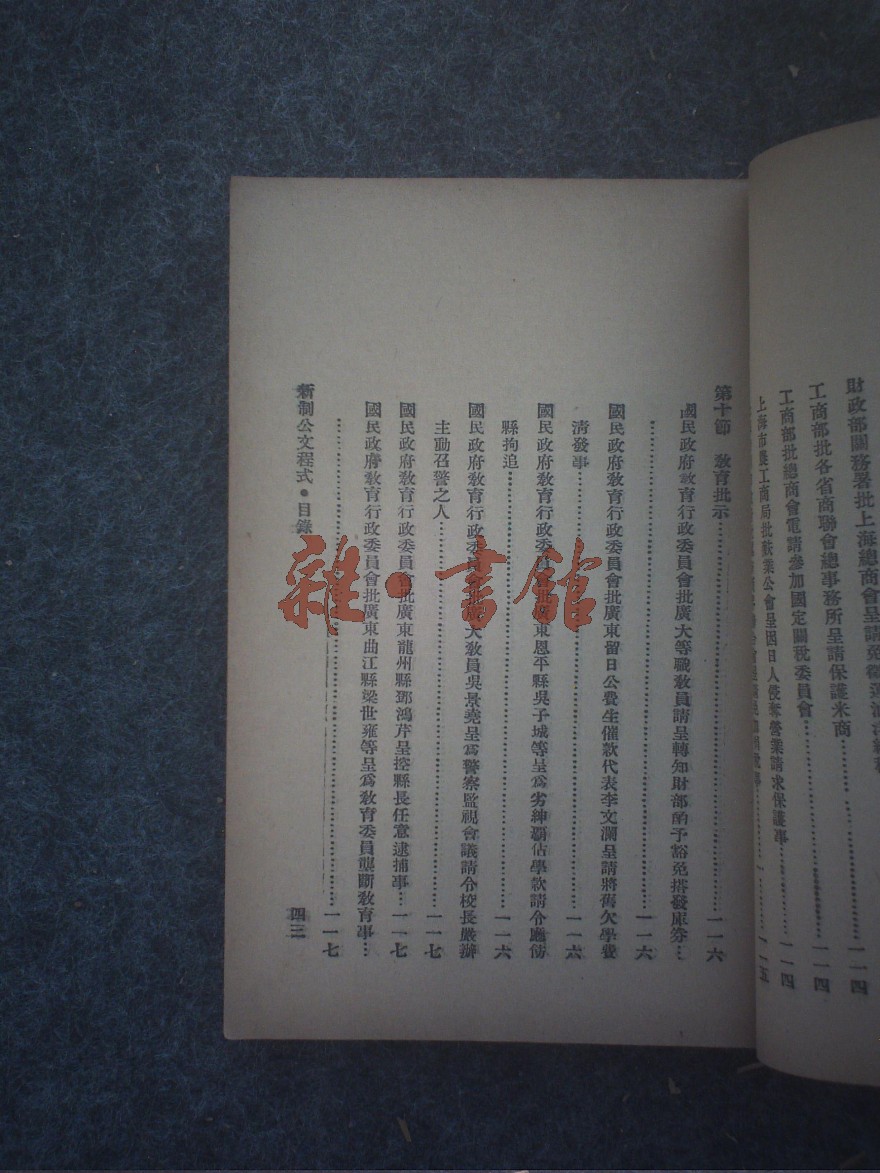 財政部關務署批上海總商會呈請免
一一四
工商部批各省商聯會總事務所呈請保護米商……一一四
工商部批總商會電請參加國定關稅委員會……一一四
上海市農工商局批 業公會呈因日人侵奪營業請求保護事……一一五
第十節 教育批示……一一六
國民政府教育行政委員會批廣大等職教員請呈轉知財部函予豁免搭發庫券…
……一一六
國民政府教育行政委員會批廣東留日公費生催款代表李文瀾呈請將舊欠學費
清發事……一一六
國民政府教育行政委員會批廣東恩平縣吳子城等呈爲劣紳霸佔學款請令應飭
縣拘追……一一六
國民政府教育行政委員會批廣大教員吳景堯呈爲警察監視會議請令校長嚴辦
主動召警之人……一一七
國民政府教育行政委員會批廣東龍州縣鄧鴻芹呈控縣長任意逮捕事…一一七
國民政府教育行政委員會批廣東曲江縣梁世雍等呈爲教育委員龔斷教育事…
……一一七
新制公文程式·目錄
四三
雜·書館